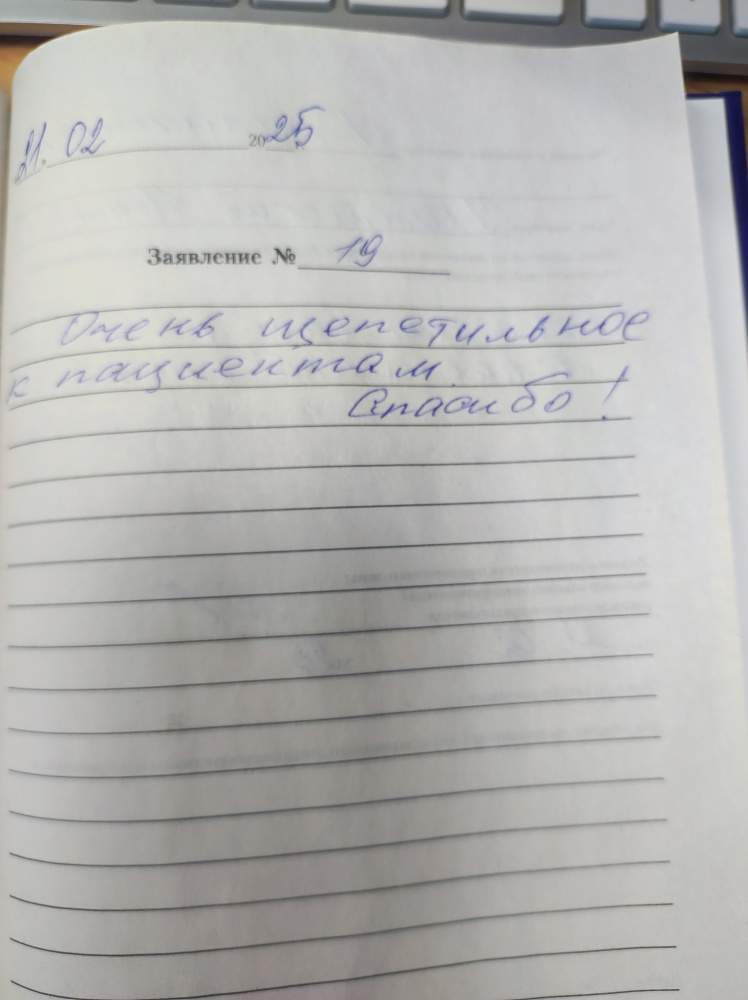 21. 02 2025
Заявление № 19
Очень щепетильное
к пациентам.
Спасибо!